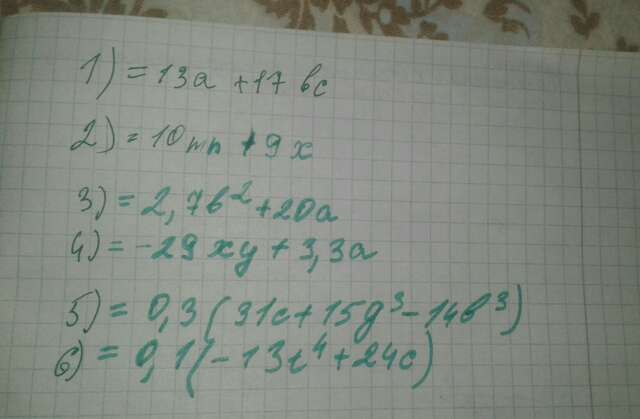 1) = 13a + 17 bc
2) = 10mn + 9x
3) = 2,7b² + 20a
4) = -29xy + 3,3a
5) = 0,3(31c + 15d³ - 14b³)
6) = 0,1(-13t⁴ + 24c)